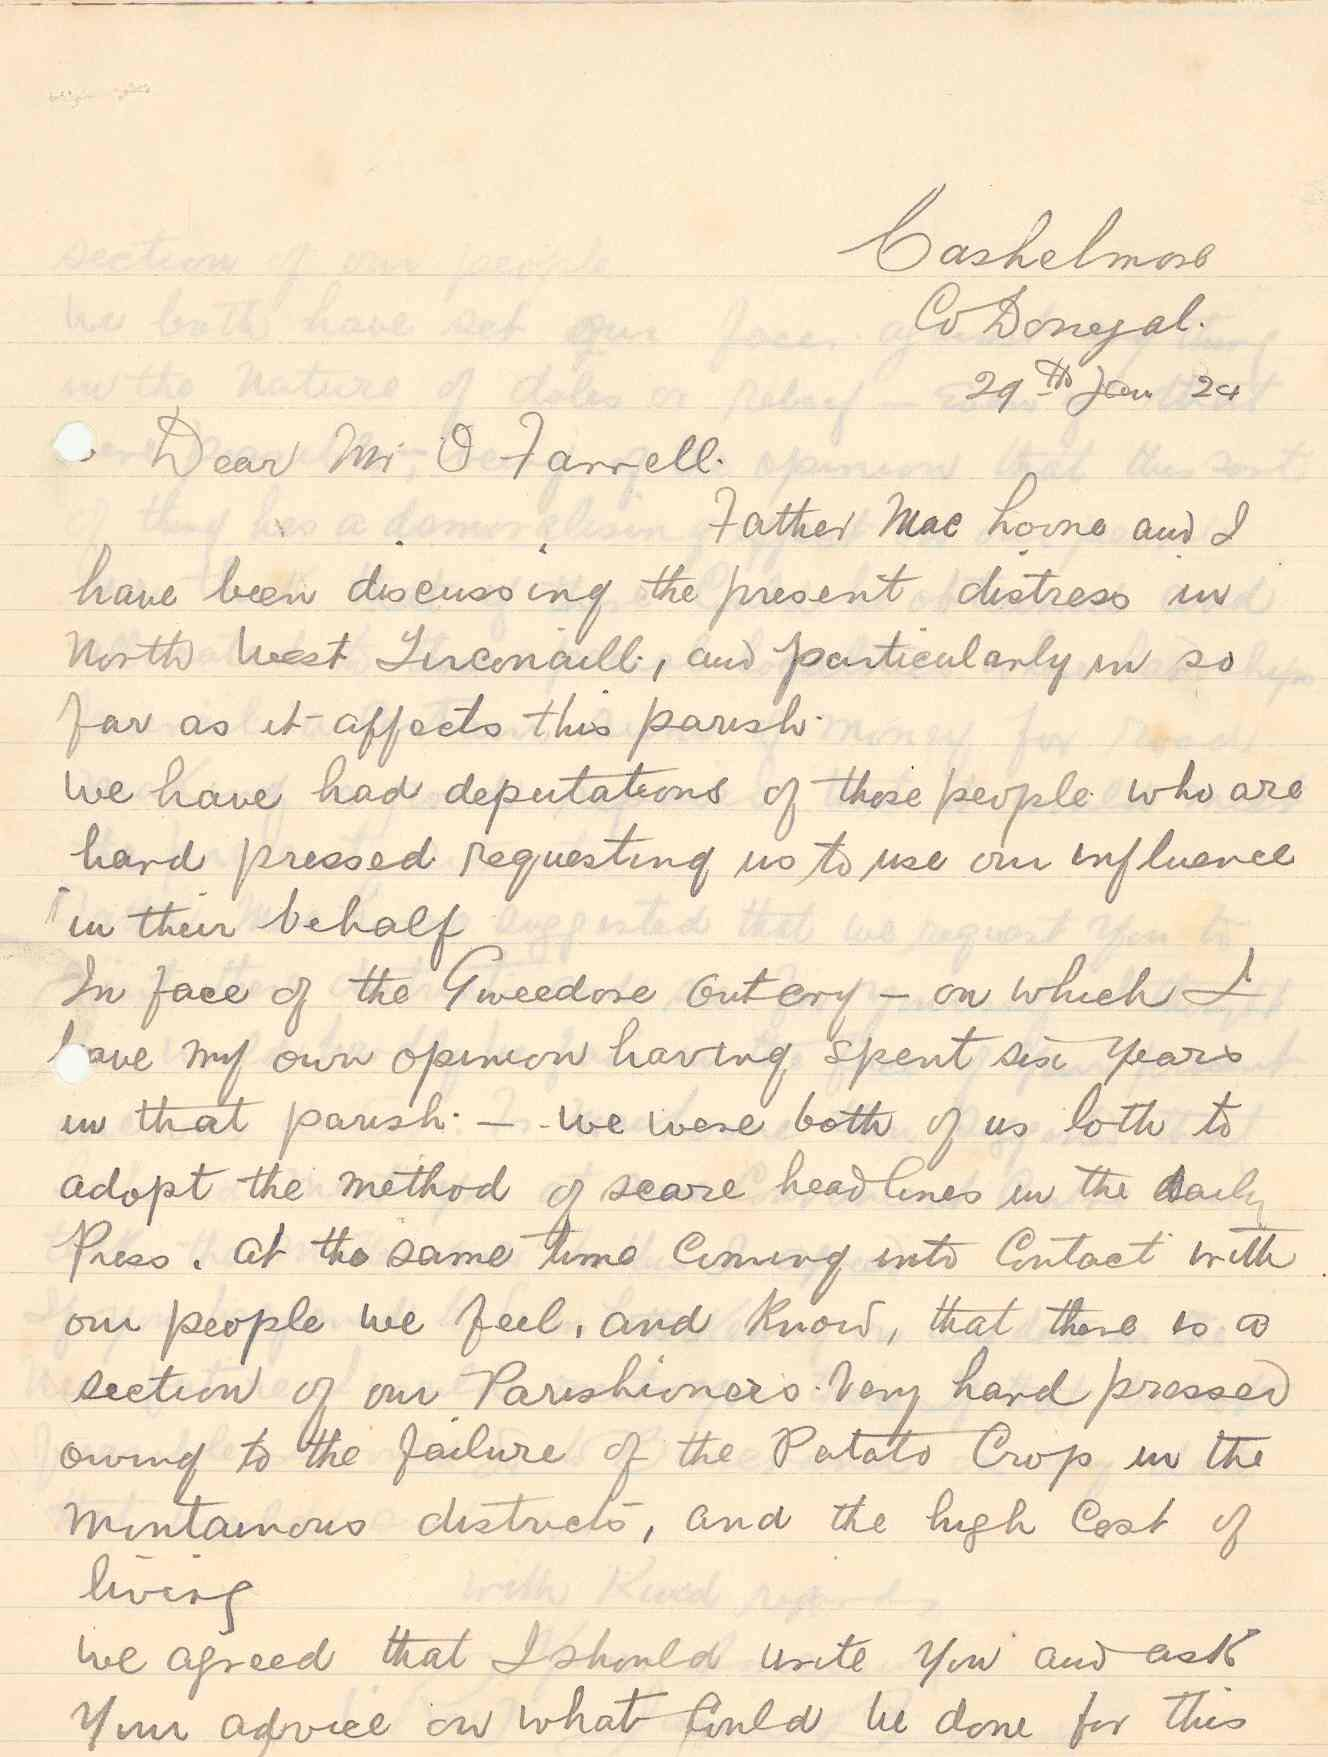 Cashelmore
Co Donegal.
29th Jan 24
Dear Mr O Farrell.
Father Mac Loone and I
have been discussing the present distress in
North West Tirconaill, and particularly in so
far as it affects this parish.
We have had deputations of those people who are
hard pressed requesting us to use our influence
in their behalf
In face of the Gweedore outcry – on which I
have my own opinion having spent six years
in that parish. – we were both of us loth to
adopt the method of scare headlines in the daily
Press. At the same time coming into contact with
our people we feel, and know, that there is a
section of our Parishioners very hard pressed
owing to the failure of the Potato Crop in the
mountainous districts, and the high cost of
living
We agreed that I should write you and ask
your advice on what could be done for this